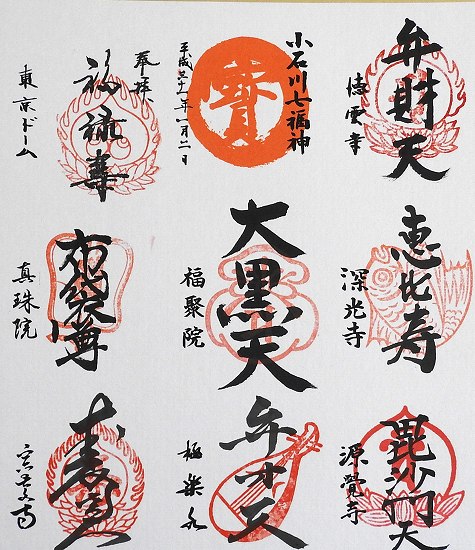 弁財天
徳雲寺
小石川七福神
寳
平成二十一年一月二日
奉拝
福禄寿
東京ドーム
恵比寿
深光寺
大黒天
福聚院
布袋尊
真珠院
毘沙門天
源覚寺
弁才天
極楽水
寿老人
宗慶寺